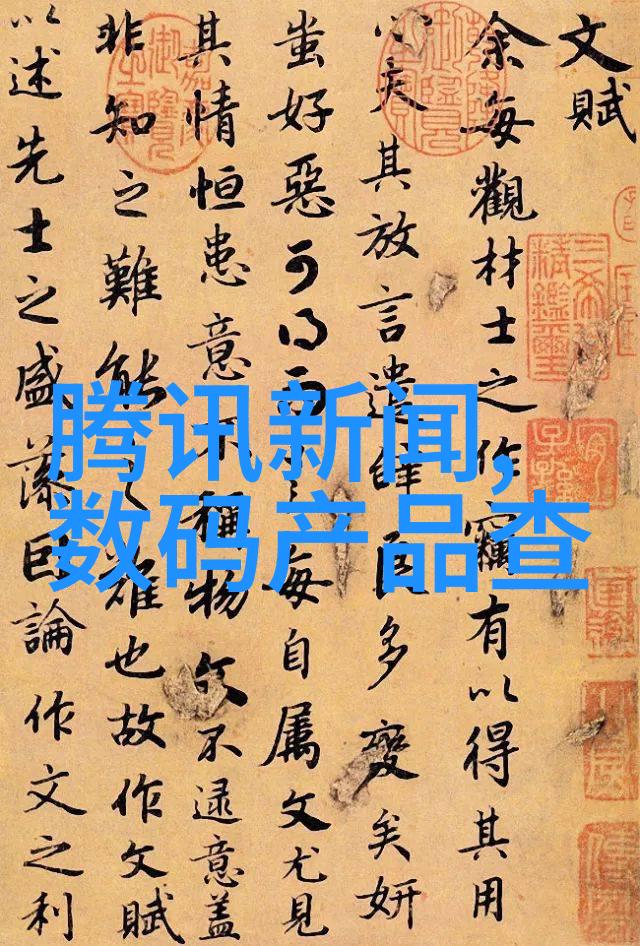 文賦
余每觀材士之作竊有以得其用
心夫其放言遣辭良多變矣妍
蚩好惡可得而言每自属文尤見
其情恒患意不稱物文不逮意盖
非知之難能之難也故作文賦
以述先士之盛藻因論作文之利
腾讯新闻,
数码产品查